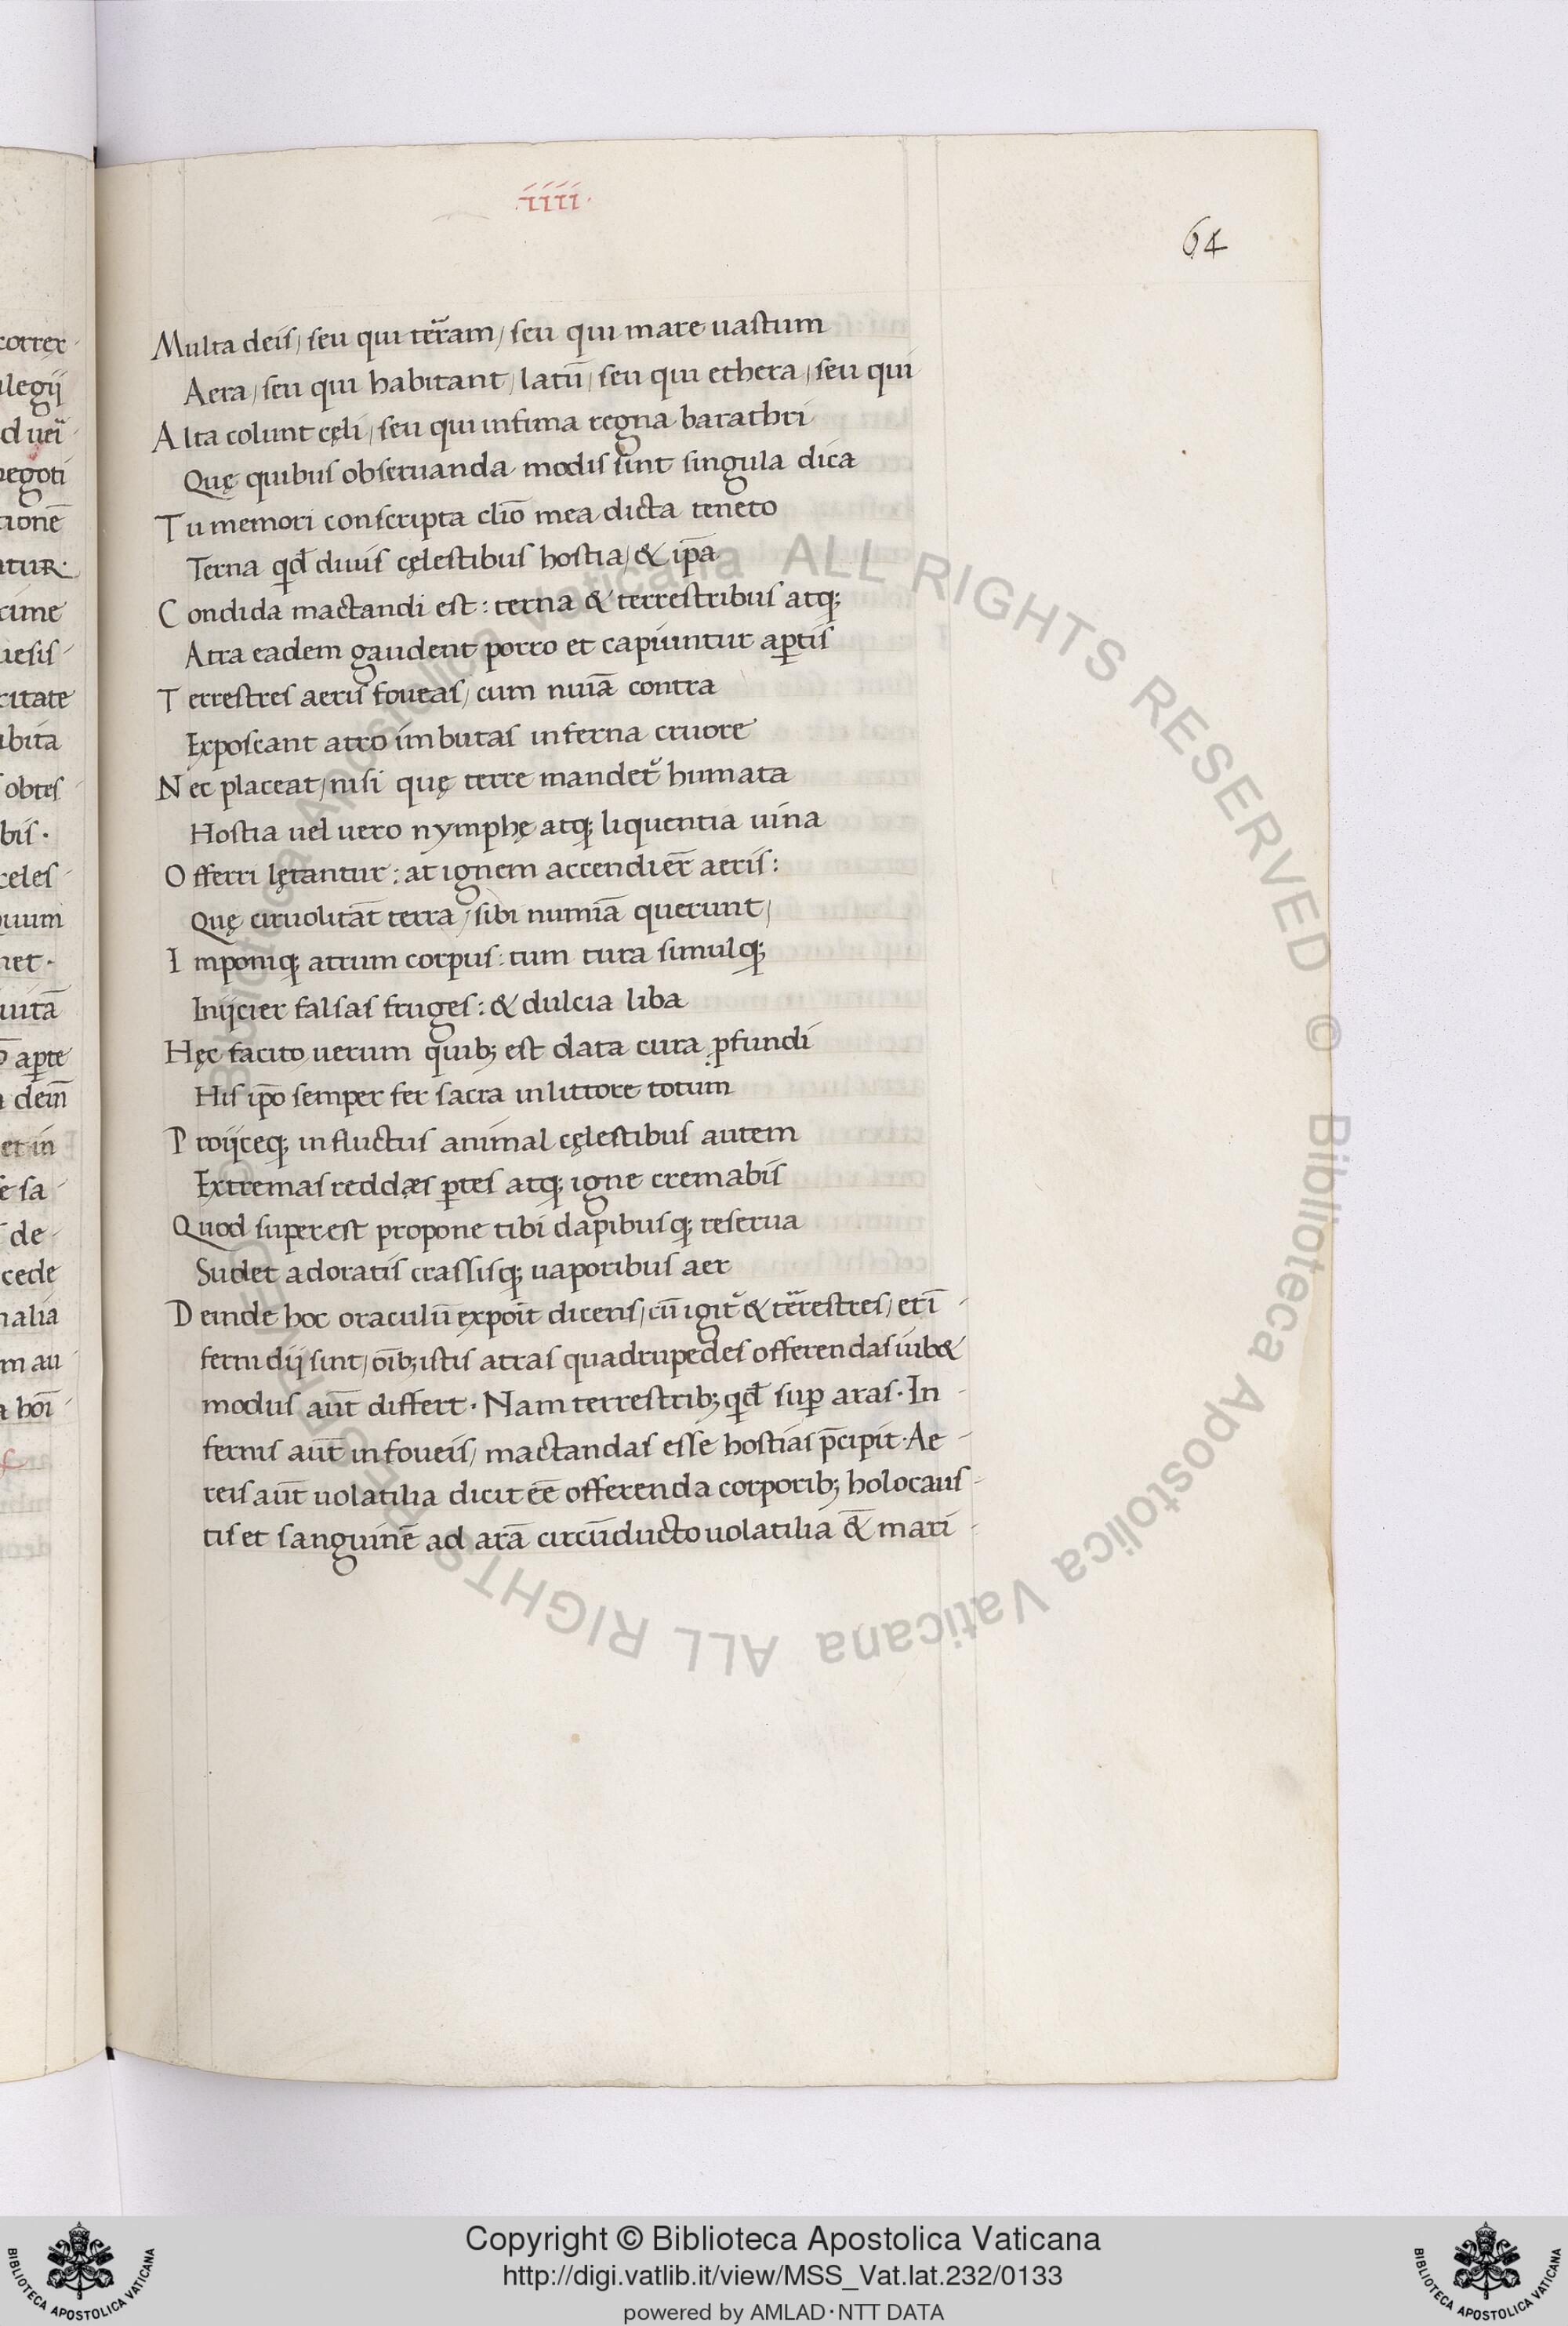 .iiii.
64
Multa deis/ seu qui ter̃am/ seu qui mare uastum
Aera/ seu qui habitant/ latū/ seu qui ethera/ seu qui
Alta colunt cęli/ seu qui infima regna barathri
Quę quibus obseruanda modis sint singula dica
Tu memori conscripta clio mea dicta teneto
Terna qđ diuis cęlestibus hostia/ & ip̄a
Condida mactandi est: terna & terrestribus atq;
Atra eadem gaudent porro et capiuntur aꝑtis
Terrestres aeris foueas/ cum nuiā contra
Exposcant atro imbutas inferna cruore
Nec placeat/ nisi quę terre mandet᷑ humata
Hostia uel uero nymphę atq; liquentia uina
Offerri lętantur: at ignem accendier̄ aeris:
Quę ciruolitāt terra/ sibi numiā querunt/
Imponiq; atrum corpus: tum tura simulq;
Iniicier falsas fruges: & dulcia liba
Hęc facito uerum quib; est data cura ꝓfundi
His ip̄o semper fer sacra in littore totum
Proiiceq; in fluctus animal cęlestibus autem
Extremas reddæs ꝑtes atq; igne cremabis
Quod super est propone tibi dapibusq; reserua
Sudet adoratis crassisq; uaporibus aer
Deinde hoc oraculū expoit dicens/ cū igit᷑ & ter̃estres/ et ī
ferni dij sint/ oīb; istis atras quadrupedes offerendas iub&
modus aūt differt. Nam terrestrib; qđ suꝑ aras. In
fernis aūt in foueis/ mactandas esse hostias p̄cipit. Ae
reis aūt uolatilia dicit eē offerenda corporib; holocaus
tis et sanguinē ad arā circūducto uolatilia &̄ mari
correx
ilegij
negoti
tionē
atur.
cime
uesis
ritate
ibita
obtes
bis.
celes
net.
uitā
aꝑte
et in
de
cede
nalia
m au
Copyright © Biblioteca Apostolica Vaticana
http://digi.vatlib.it/view/MSS_Vat.lat.232/0133
powered by AMLAD·NTT DATA
BIBLIOTECA APOSTOLICA VATICANA
BIBLIOTECA APOSTOLICA VATICANA
© Biblioteca Apostolica Vaticana ALL RIGHTS RESERVED © Biblioteca Apostolica Vaticana ALL RIGHTS RESERVED